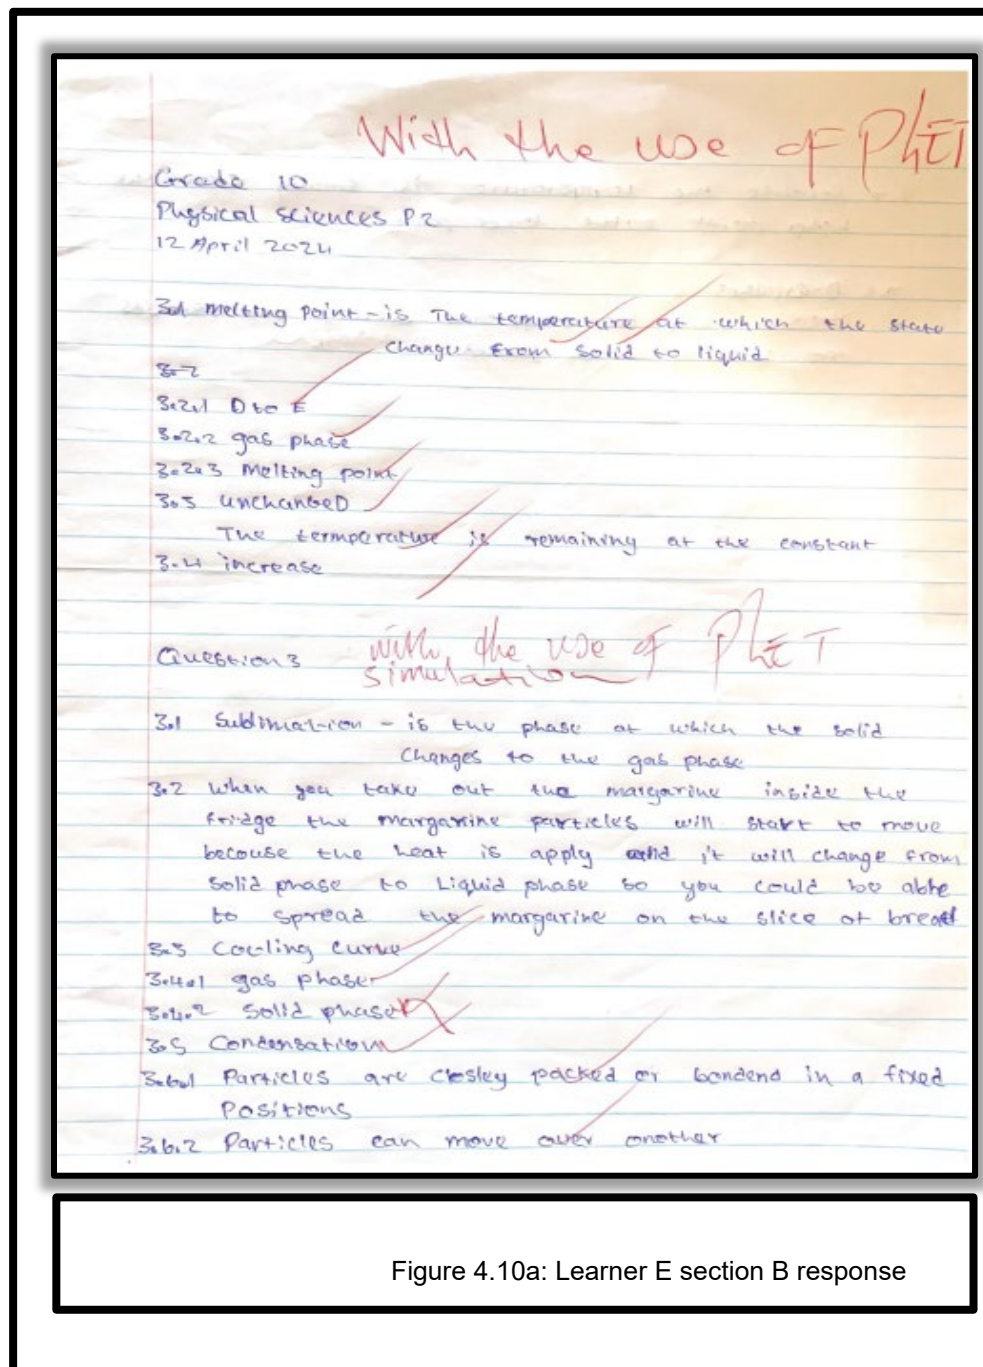 With the use of PhET
Grade 10
Physical sciences P2
12 April 2024
3.1 melting point - is The temperature at which the state
change from solid to liquid
3.2
3.2.1 D to E
3.2.2 gas phase
3.2.3 Melting point
3.3 unchangeD
The termperature is remaining at the constant
3.4 increase
Question 3
with the use of PhET
simulation
3.1 Sublimation - is the phase at which the solid
changes to the gas phase
3.2 When you take out the margarine inside the
fridge the margarine particles will start to move
becouse the heat is apply and it will change from
solid phase to Liquid phase so you could be able
to spread the margarine on the slice of bread
3.3 Cooling curve
3.4.1 gas phase
3.4.2 Solid phase
3.5 Condensation
3.6.1 Particles are closley packed or bondend in a fixed
Positions
3.6.2 Particles can move over another
Figure 4.10a: Learner E section B response